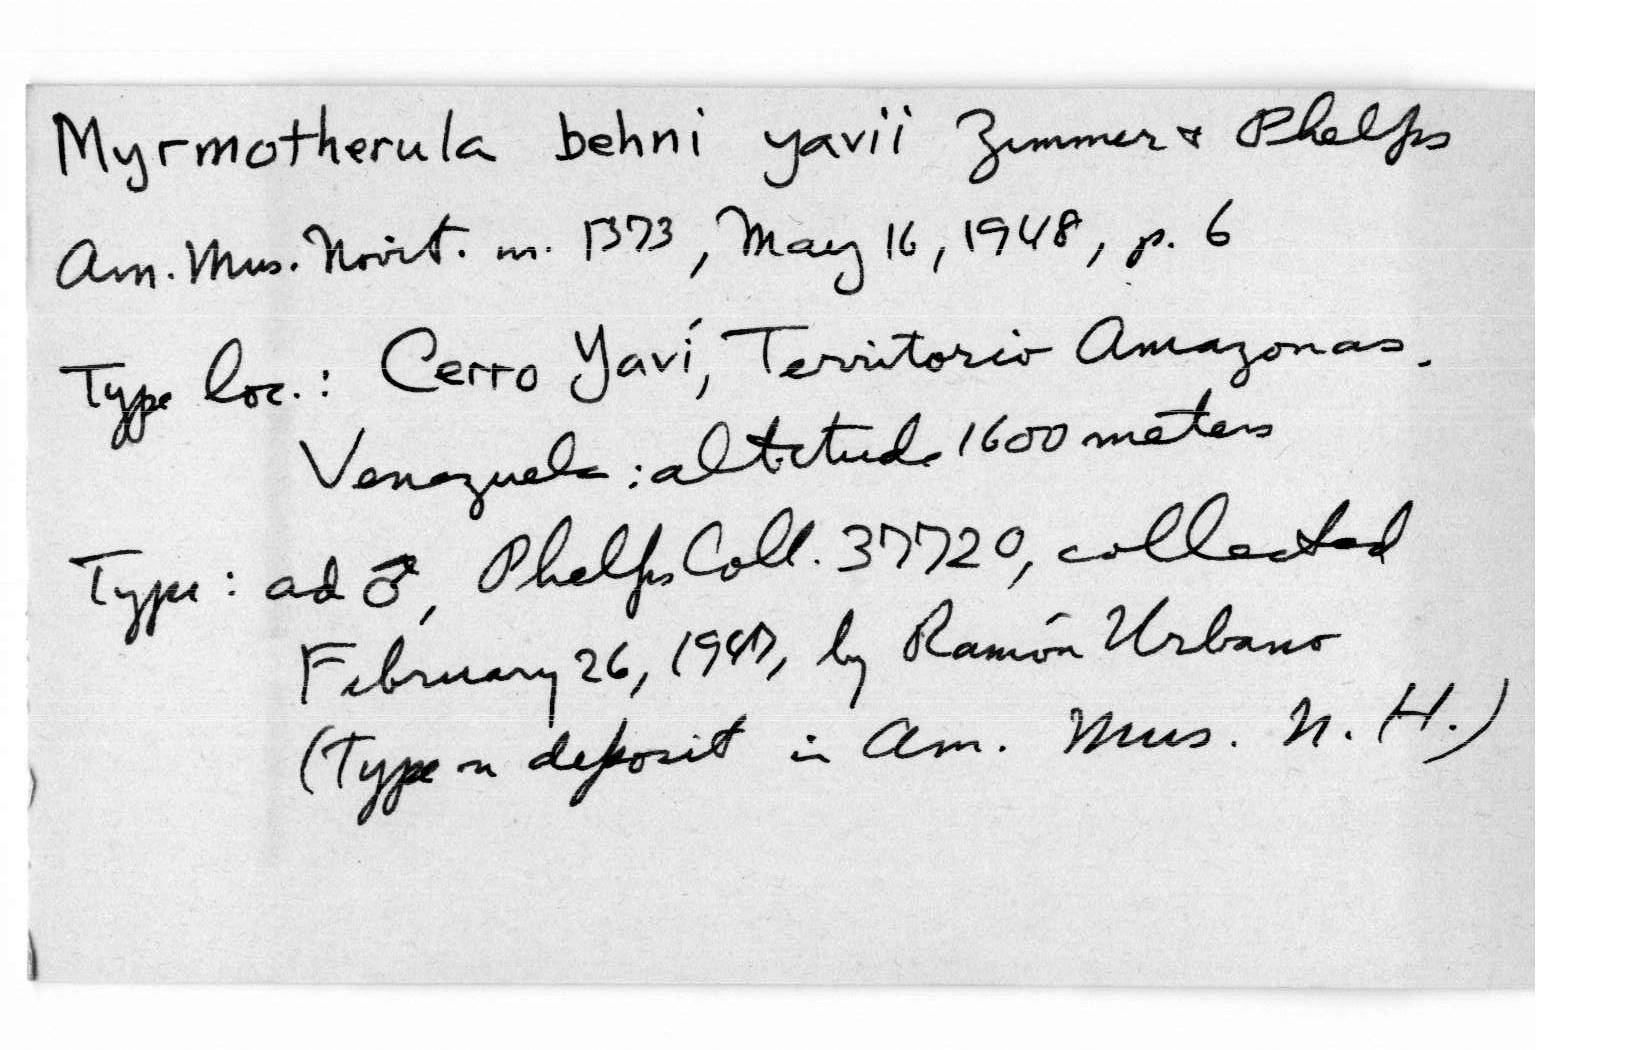 Myrmotherula behni yavii Zimmer & Phelps
Am. Mus. Novit. no. 1373, May 16, 1948, p. 6
Type loc.: Cerro Yaví, Territorio Amazonas.
Venezuela: altitude 1600 meters
Type: ad ♂, Phelps Coll. 37720, collected
February 26, 1947, by Ramón Urbano
(Type on deposit in Am. Mus. N. H.)